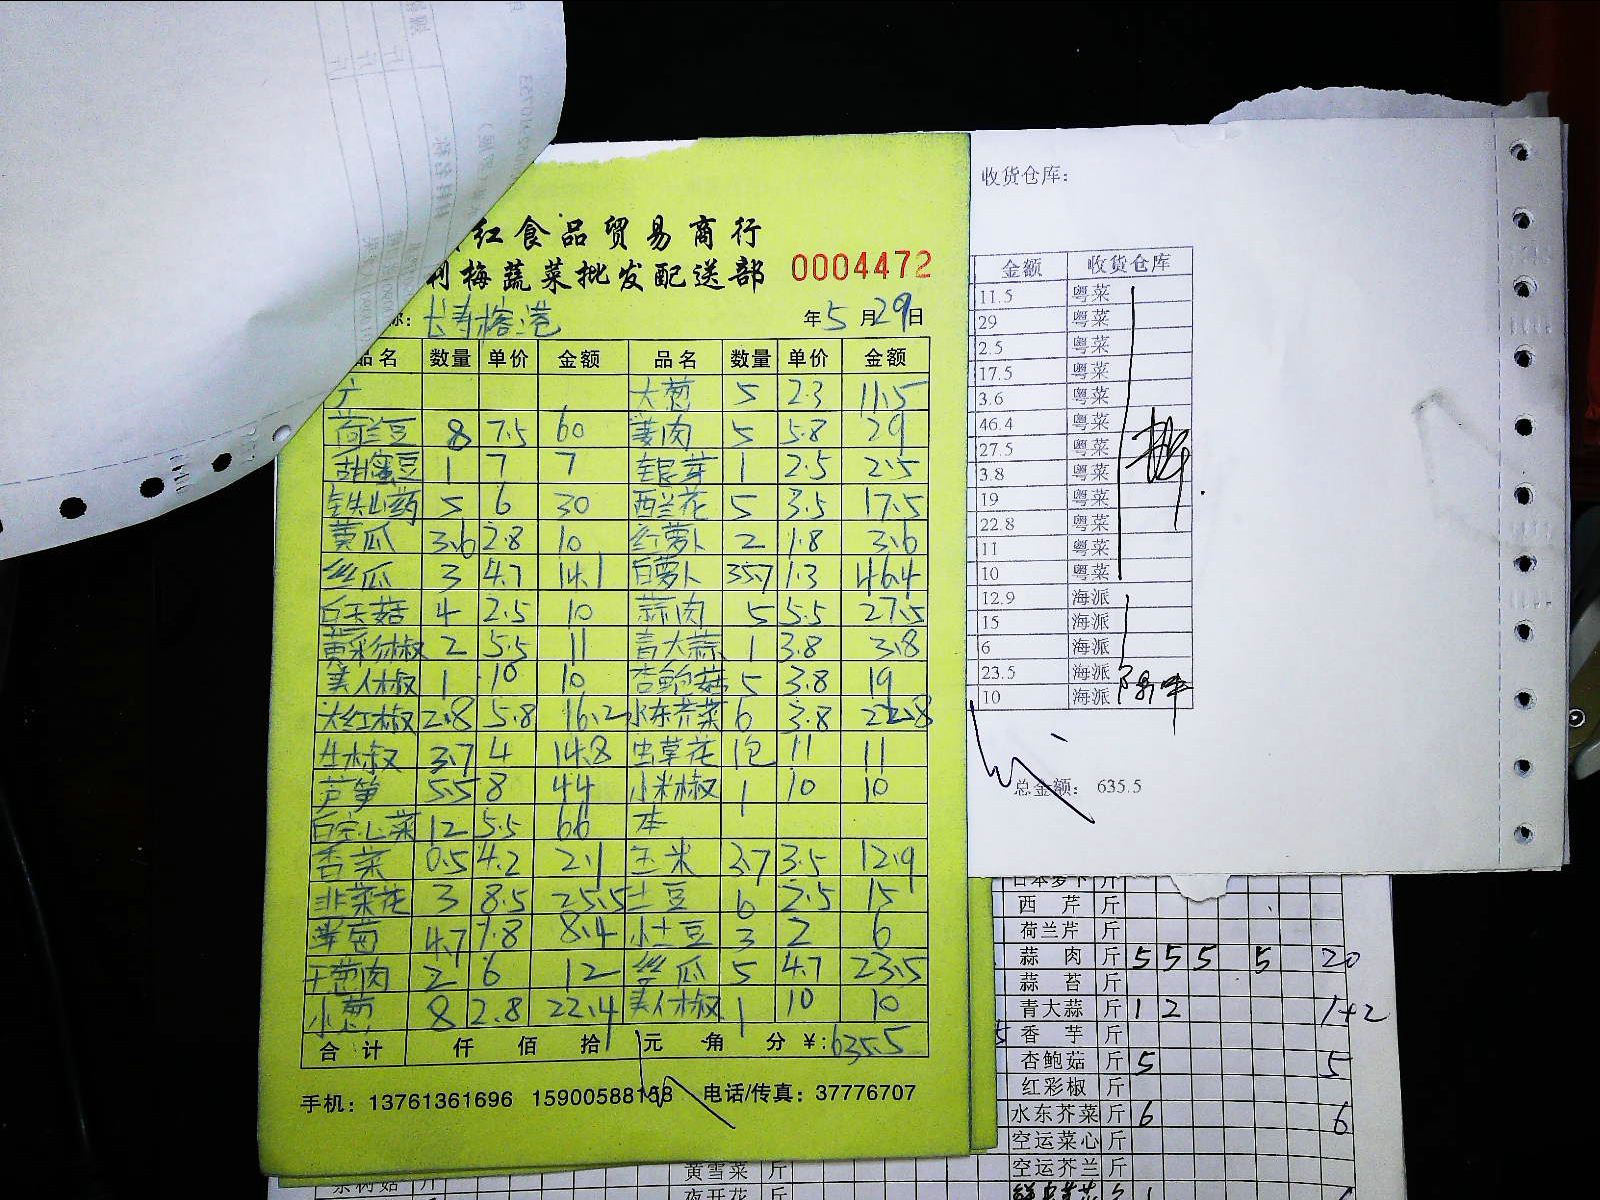 红食品贸易商行
利梅蔬菜批发配送部 0004472
称: 长寿榕港 年5月29日
品名 数量 单价 金额 品名 数量 单价 金额
广 大葱 5 2.3 11.5
荷兰豆 8 7.5 60 姜肉 5 5.8 29
胡蜜豆 1 7 7 银芽 1 2.5 2.5
铁山药 5 6 30 西兰花 5 3.5 17.5
黄瓜 3.6 2.8 10 红萝卜 2 1.8 3.6
丝瓜 3 4.7 14.1 白萝卜 35.7 1.3 46.4
白玉菇 4 2.5 10 蒜肉 5 5.5 27.5
黄彩椒 2 5.5 11 青大蒜 1 3.8 3.8
美人椒 1 10 10 杏鲍菇 5 3.8 19
大红椒 2.8 5.8 16.2 水东芥菜 6 3.8 22.8
牛椒 3.7 4 14.8 虫草花 1包 11 11
芦笋 5.5 8 44 小米椒 1 10 10
白空心菜 12 5.5 66 本
香菜 0.5 4.2 2.1 玉米 3.7 3.5 12.9
韭菜花 3 8.5 25.5 土豆 6 2.5 15
4.7 1.8 8.4 小土豆 3 2 6
干葱肉 2 6 12 丝瓜 5 4.7 23.5
小葱 8 2.8 22.4 美人椒 1 10 10
合计 仟 佰 拾 元 角 分 ¥: 635.5
手机: 13761361696 15900588168 电话/传真: 37776707
收货仓库:
金额 收货仓库
11.5 粤菜
29 粤菜
2.5 粤菜
17.5 粤菜
3.6 粤菜
46.4 粤菜
27.5 粤菜
3.8 粤菜
19 粤菜
22.8 粤菜
11 粤菜
10 粤菜
12.9 海派
15 海派
6 海派
23.5 海派
10 海派
总金额: 635.5
日本萝卜 斤
西芹 斤
荷兰芹 斤
蒜肉 斤 5 5 5 5 20
蒜苔 斤
青大蒜 斤 1 2 1+2
香芋 斤
杏鲍菇 斤 5 5
红彩椒 斤
水东芥菜 斤 6 6
空运菜心 斤
空运芥兰 斤
黄雪菜 斤
夜开花 斤